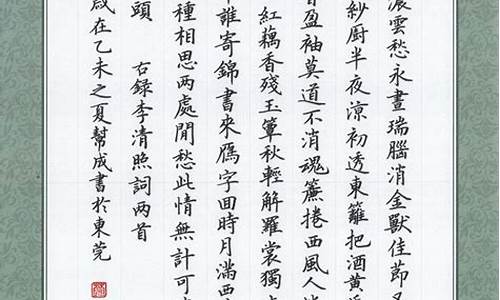 濃雲愁永晝瑞腦消金獸佳節又
紗厨半夜涼初透東籬把酒黃
香盈袖莫道不消魂簾捲西風人
紅藕香殘玉簟秋輕解羅裳獨
誰寄錦書來雁字回時月滿西
種相思两處閒愁此情無計可
頭　右録李清照詞两首
歲在乙未之夏幫成書於東莞